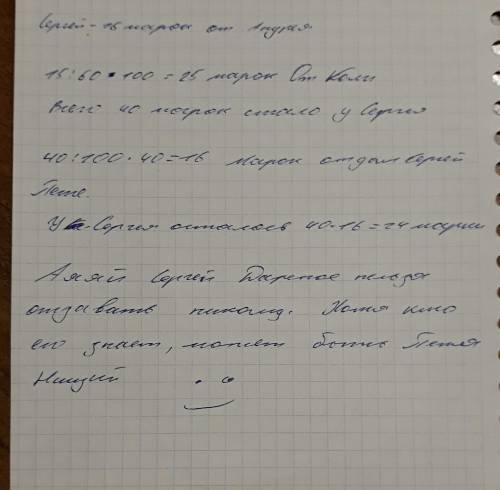 Сергей - 15 марок от Андрея
15:60•100=25 марок От Коли
Всего 40 марок стало у Сергея
40:100•40=16 Марок отдал Сергей
Пете.
У Сергея осталось 40-16=24 марки
Аяяй Сергей Дареное нельзя
отдавать никому. Хотя кто
его знает, может быть Петя
Нищий